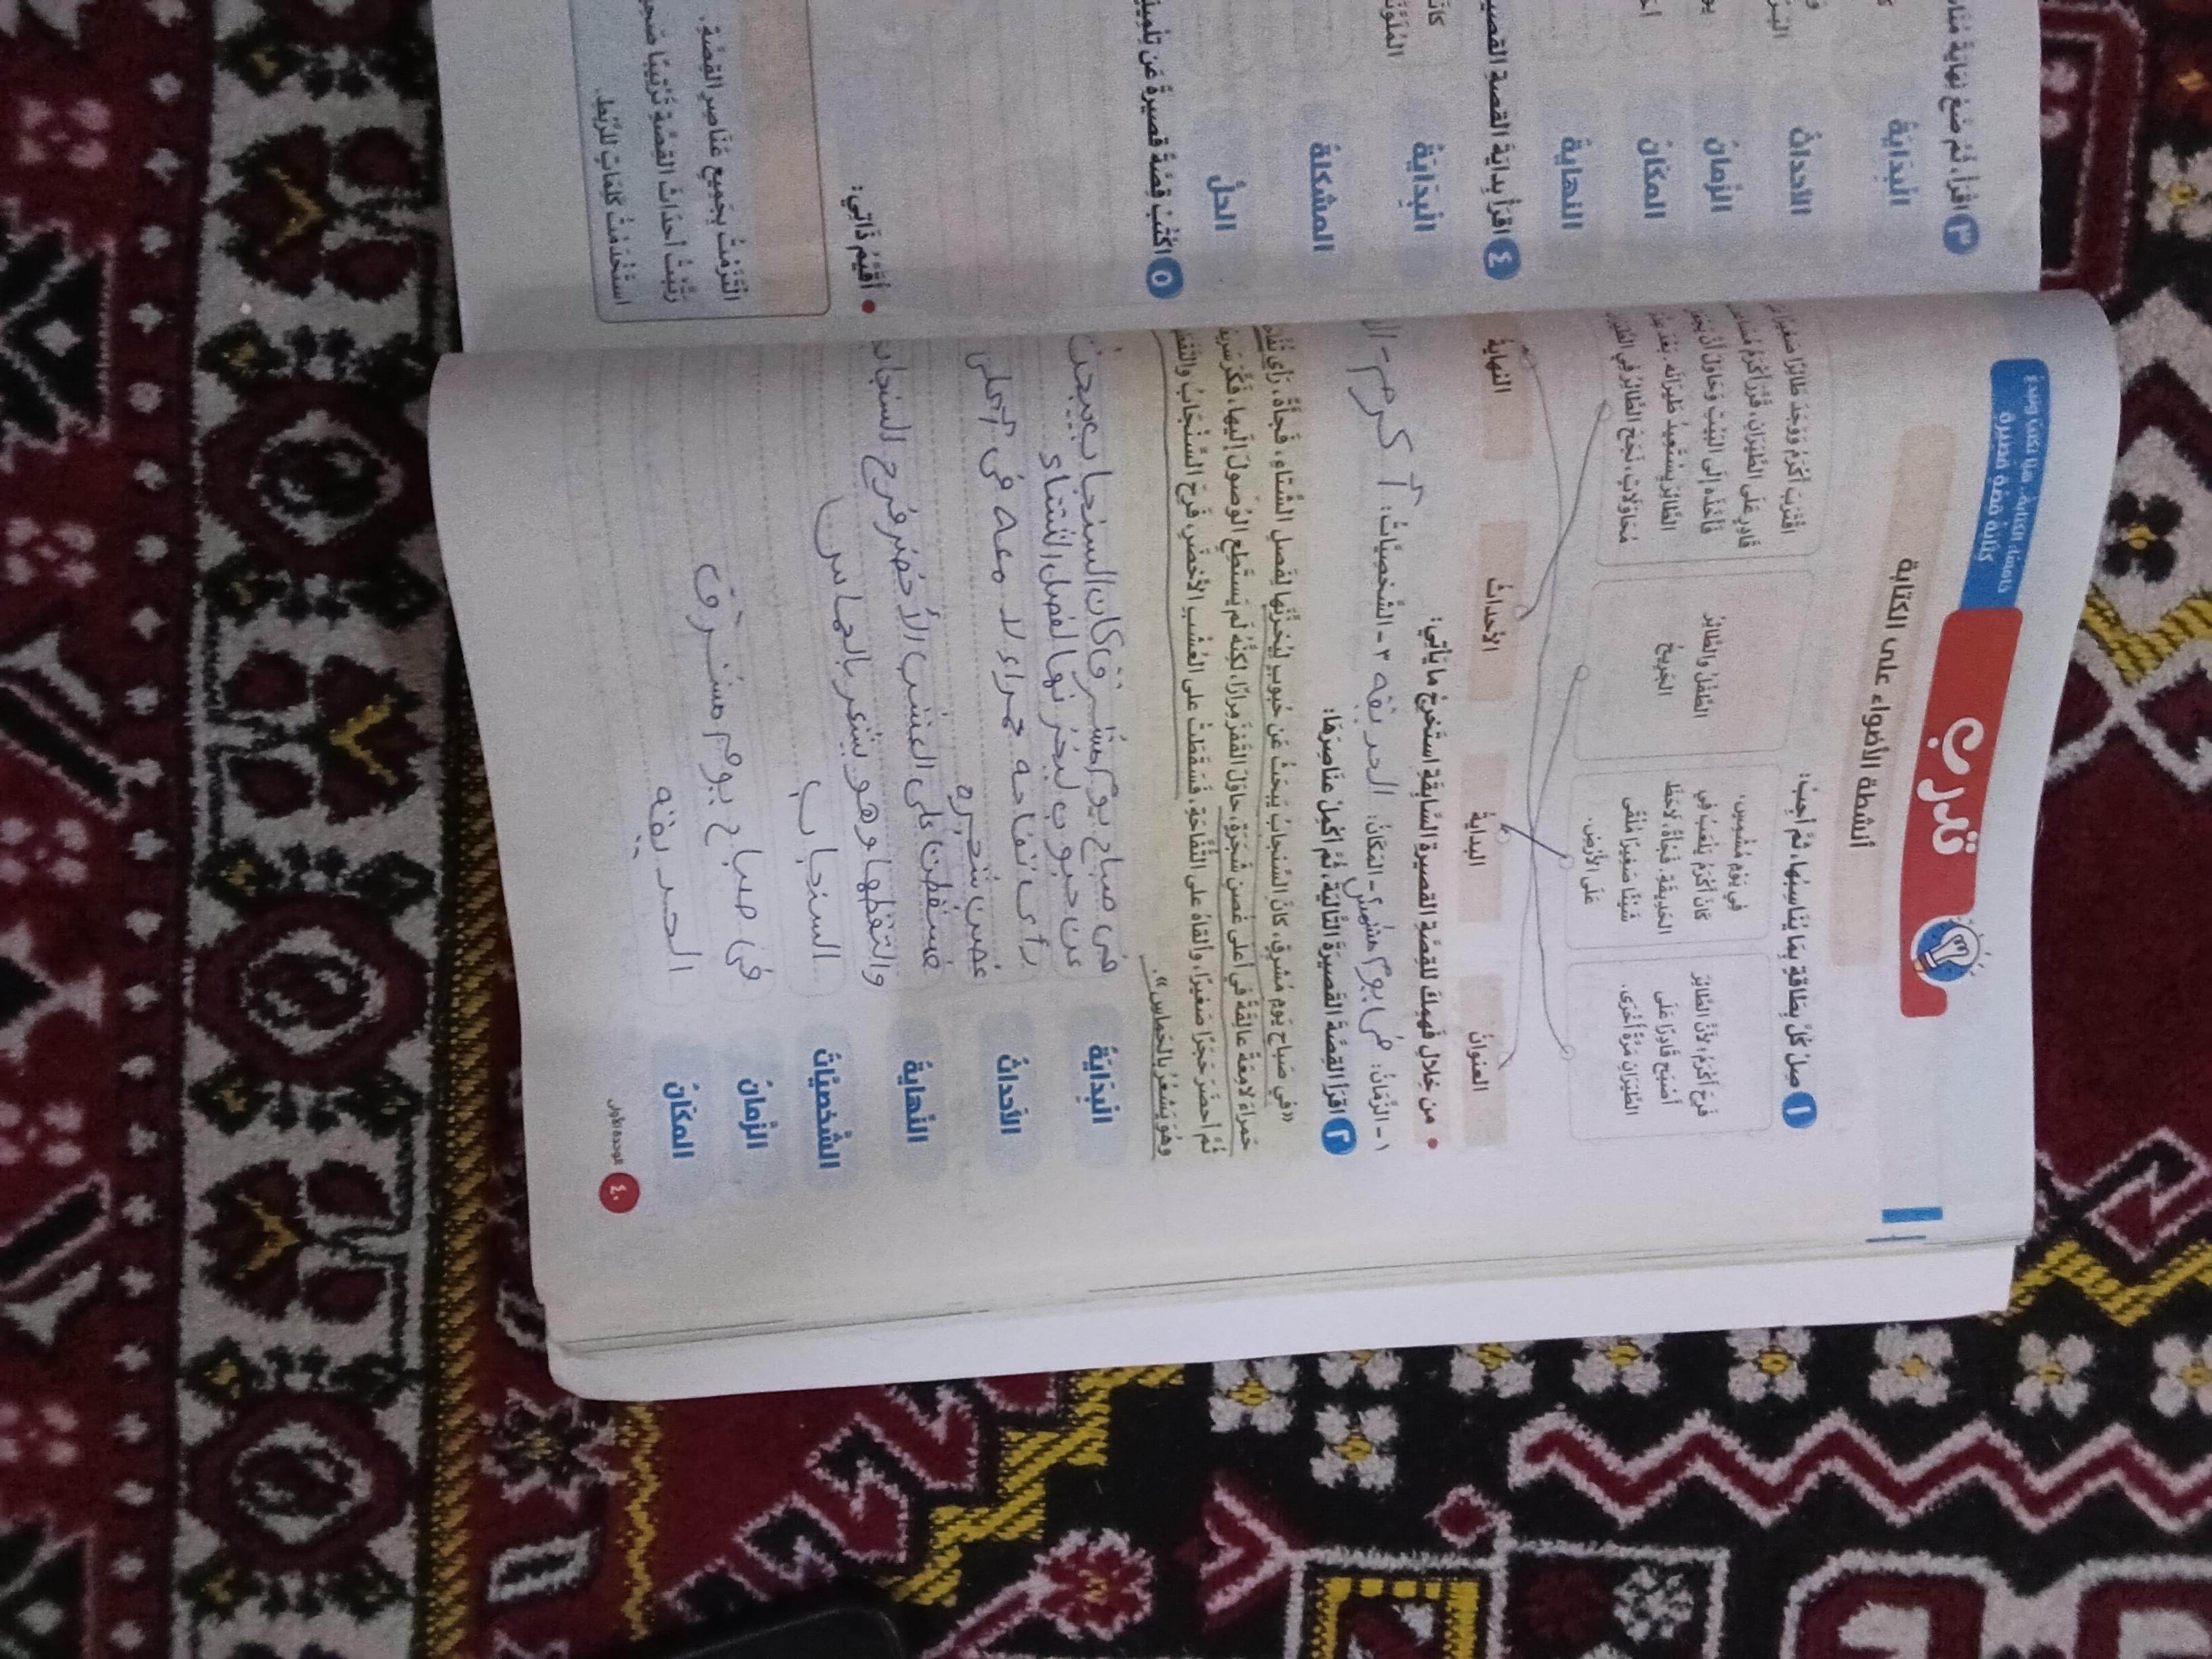 خامسًا: الكتابة: هيا نكتب ونبدع
كتابة قصة قصيرة
تدرب
أنشطة الأضواء على الكتابة
١ صِلْ كُلَّ بِطَاقَةٍ بِمَا يُنَاسِبُهَا، ثُمَّ أَجِبْ:
فَرِحَ أَكْرَمُ؛ لِأَنَّ الطَّائِرَ
أَصْبَحَ قَادِرًا عَلَى
الطَّيَرَانِ مَرَّةً أُخْرَى.
فِي يَوْمٍ مُشْمِسٍ،
كَانَ أَكْرَمُ يَلْعَبُ فِي
الحَدِيقَةِ. فَجْأَةً، لَاحَظَ
شَيْئًا صَغِيرًا مُلْقًى
عَلَى الأَرْضِ.
الطِّفْلُ والطَّائِرُ
الجَرِيحُ
اقْتَرَبَ أَكْرَمُ وَوَجَدَ طَائِرًا صَغِيرًا
قَادِرٍ عَلَى الطَّيَرَانِ، قَرَّرَ أَكْرَمُ
فَأَخَذَهُ إِلَى البَيْتِ وَحَاوَلَ أَنْ
الطَّائِرُ يَسْتَعِيدُ طَيَرَانَهُ. بَعْدَ
مُحَاوَلَاتٍ، نَجَحَ الطَّائِرُ فِي
العنوانُ
البدايةُ
الأحداثُ
النهايةُ
• من خِلالِ فَهمِكَ للقِصَّةِ القَصيرةِ السَّابِقةِ استَخرِجْ ما يَأتِي:
١- الزَّمَانُ: في يوم مشمس ٢- المَكَانُ: الحديقه ٣- الشَّخصِيَّاتُ: أكرم - ال
٢ اقرَأ القِصَّةَ القَصيرَةَ التَّالِيَةَ، ثُمَّ أَكمِلْ عَناصِرَهَا:
«في صَباحِ يَومٍ مُشرِقٍ، كانَ السِّنجَابُ يَبحَثُ عَن حُبوبٍ ليُخَزِّنَها لِفَصلِ الشِّتاءِ، فَجأَةً، رَأى
حَمراءَ لامِعَةً عالِقَةً في أعلَى غُصنِ شَجَرَةٍ، حاوَلَ القَفزَ مِرارًا، لكِنَّهُ لَم يَستَطِع الوُصولَ إلَيها، فَكَّرَ
ثُمَّ أَحضَرَ حَجَرًا صَغيرًا، وأَلقاهُ على التُّفَّاحَةِ، فَسَقَطَتْ على العُشبِ الأَخضَرِ، فَرِحَ السِّنْجَابُ
وهُوَ يَشعُرُ بالحَماسِ».
البِدَايَةُ
في صباح يوم مشرق كان السنجاب يبحث
عن حبوب ليخزنها لفصل الشتاء
الأحداثُ
رأى تفاحه حمراء لا معه فى أعلى
غصن شجره
النِّهايةُ
فسقطت على العشب الأخضر فرح السنجاب
والتقطها وهو يشعر بالحماس
الشَّخصِيَّاتُ
السنجاب
الزَّمانُ
فى صباح يوم مشرق
المَكانُ
الحديقه
٤٠ الوحدة الأولى
٣ اقْرَأْ، ثُمَّ ضَعْ نِهَايَةً
البِدَايَةُ
الأحداثُ
الزَّمانُ
المكانُ
النهايةُ
٤ اقرَأْ بِدَايَةَ القصةِ
البِدَايَةُ
المشكلةُ
الحلُّ
٥ اكْتُبْ قِصَّةً قَصِيرَةً عَنْ
• أُقَيِّمُ ذَاتِي:
الْتَزَمْتُ بِجَمِيعِ عَنَاصِرِ القِصَّةِ.
رَتَّبْتُ أَحْدَاثَ القِصَّةِ تَرْتِيبًا
اسْتَخْدَمْتُ كَلِمَاتٍ لِلرَّبْطِ.